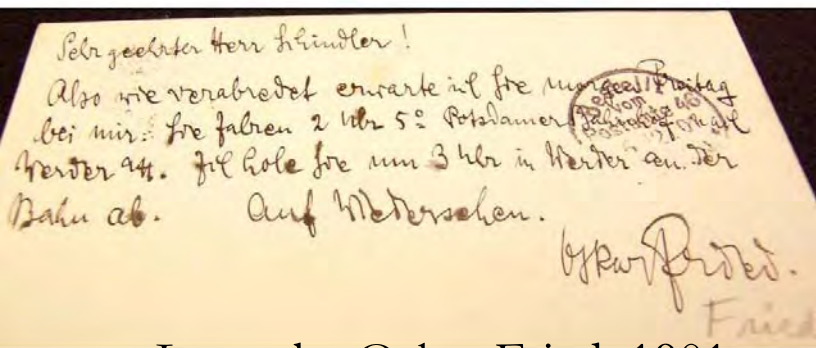 Sehr geehrter Herr Schindler!
Also wie verabredet erwarte ich Sie morgen Freitag
bei mir. Sie fahren 2 Uhr 5º Potsdamer nach
Werder ab. Ich hole Sie um 3 Uhr in Werder an der
Bahn ab. Auf Wiedersehen.
Oskar Fried.
Fried
Oskar Fried 1904